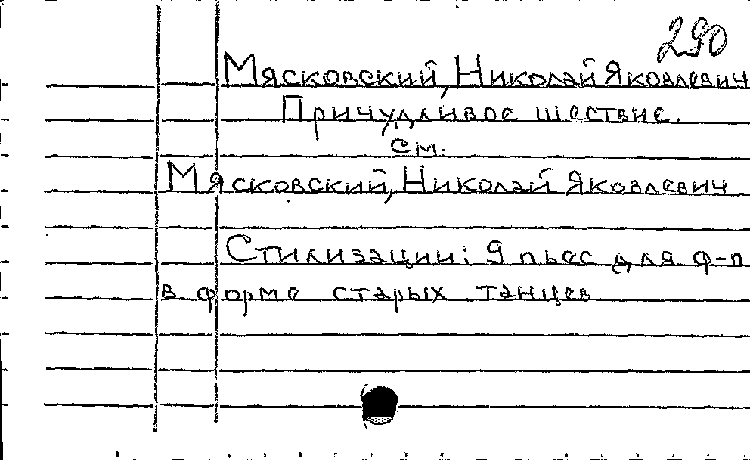 290
Мясковский, Николай Яковлевич
Причудливое шествие.
см.
Мясковский, Николай Яковлевич
Стилизации: 9 пьес для ф-п
в форме старых танцев